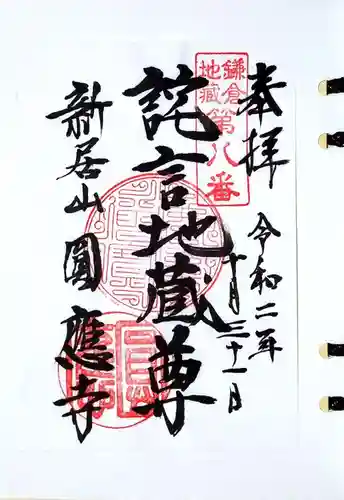 奉拝
令和二年
十月三十一日
鎌倉
地蔵第八番
詫言地蔵尊
新居山圓應寺